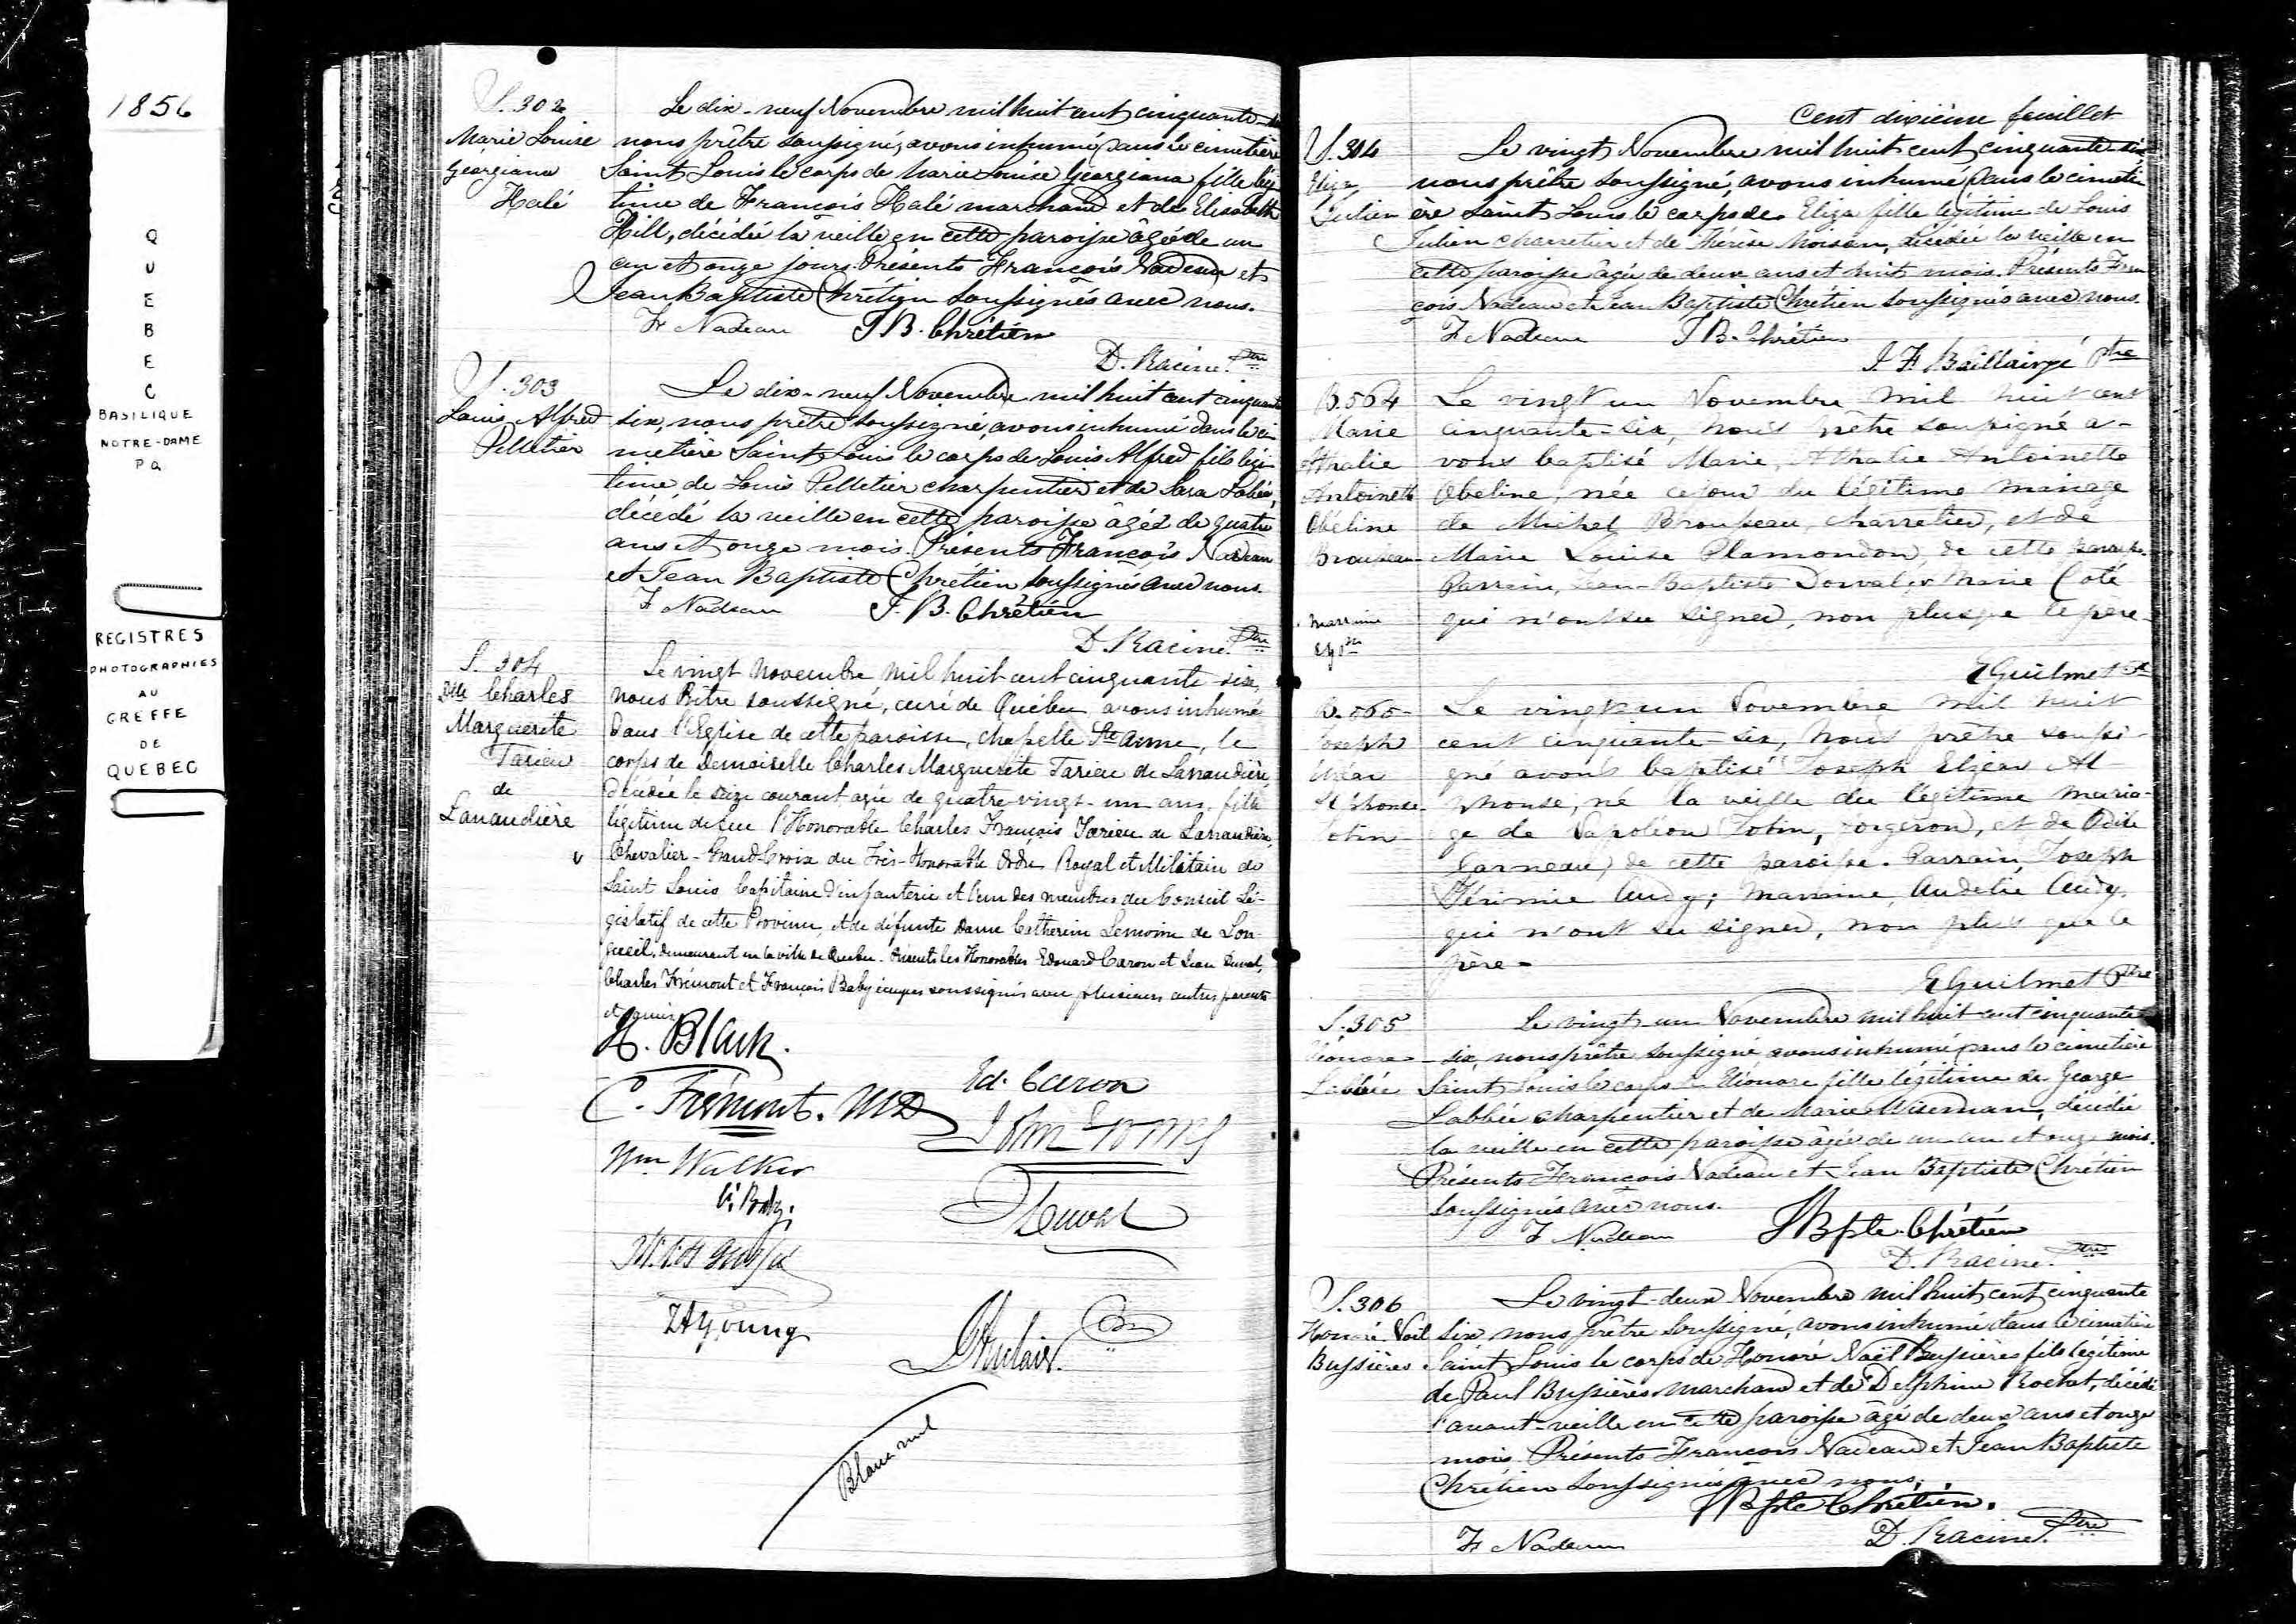 1856
QUEBEC
BASILIQUE
NOTRE-DAME
PQ
REGISTRES
PHOTOGRAPHIES
AU
GREFFE
DE
QUEBEC
S. 302
Marie Louise
Georgiana
Halé
Le dix-neuf Novembre mil huit cent cinquante
nous prêtre soussigné, avons inhumé dans le cimetière
Saint Louis le corps de Marie Louise Georgiana fille légi
time de François Halé marchand et de Elisabeth
Hill, décédée la veille en cette paroisse âgée de un
an et onze jours. Présents François Nadeau et
Jean Baptiste Chrétien soussignés avec nous.
Fr Nadeau J B. Chrétien
D. Racine Ptre
S. 303
Louis Alfred
Pelletier
Le dix-neuf Novembre mil huit cent cinquante
six, nous prêtre soussigné, avons inhumé dans le ci
metière Saint Louis le corps de Louis Alfred fils légi
time de Louis Pelletier charpentier et de Sara
décédé la veille en cette paroisse âgé de quatre
ans et onze mois. Présents François Nadeau
et Jean Baptiste Chrétien soussignés avec nous.
F Nadeau J. B. Chrétien
D. Racine Ptre
S. 304
Dlle Charles
Marguerite
Tarieu
de
Lanaudière
Le vingt novembre mil huit cent cinquante-six,
nous Prêtre soussigné, curé de Québec avons inhumé
dans l'Eglise de cette paroisse, chapelle Ste Anne, le
corps de Demoiselle Charles Marguerite Tarieu de Lanaudière
décédée le seize courant agée de quatre-vingt-un ans, fille
légitime de feu l'Honorable Charles François Tarieu de Lanaudière
Chevalier-Grand-Croix du Très-Honorable Ordre Royal et Militaire de
Saint Louis Capitaine d'infanterie et l'un des membres du Conseil Lé-
gislatif de cette Province, et de défunte Dame Catherine Lemoine de Lon-
gueil, demeurant en la ville de Quebec. Présents les Honorables Edouard Caron et Jean Duval,
Charles Frémont et François Baby écuyers soussignés avec plusieurs autres parents
et amis
H. Black.
Ed. Caron
C. Frémont. MD
Wm Walker
Baby.
Duval
Young
Auclair
Blanc nul
Cent dixième feuillet
S. 304
Eliza
Julien
Le vingt Novembre mil huit cent cinquante-six
nous prêtre soussigné, avons inhumé dans le cimeti
ère Saint Louis le corps de Eliza fille légitime de Louis
Julien charretier et de Thérèse Moisan, décédée la veille en
cette paroisse âgée de deux ans et huit mois. Présents Fran
çois Nadeau et Jean Baptiste Chrétien soussignés avec nous.
F Nadeau J B. Chrétien
J. F. Baillairgé Ptre
B. 564
Marie
Athalie
Antoinette
Obeline
Brousseau
Le vingt un Novembre mil huit cent
cinquante-six, nous prêtre soussigné a-
vons baptisé Marie, Athalie Antoinette
Obeline, née ce jour du légitime mariage
de Michel Brousseau, charretier, et de
Marie Louise Plamondon, de cette paroisse.
Parrain, Jean-Baptiste Dorval, Marie Coté
marraine
qui n'ont su signer, non plus que le père.
E Guilmet Ptre
B. 565
Joseph
Elzéar
Alphonse
Tobin
Le vingt un Novembre mil huit
cent cinquante-six, nous prêtre soussi-
gné avons baptisé Joseph Elzéar Al-
phonse, né la veille du légitime maria-
ge de Napoléon Tobin, forgeron, et de Odile
Garneau, de cette paroisse. Parrain, Joseph
Jérémie Audy; marraine, Audelie Audy,
qui n'ont su signer, non plus que le
père.
E Guilmet Ptre
S. 305
Eléonore
Labbée
Le vingt-un Novembre mil huit cent cinquante
six, nous prêtre soussigné avons inhumé dans le cimetière
Saint Louis le corps de Eléonore fille légitime de George
Labbée charpentier et de Marie Wiseman, décédée
la veille en cette paroisse âgée de un an et onze mois.
Présents François Nadeau et Jean Baptiste Chrétien
soussignés avec nous.
F Nadeau J Bpte Chrétien
D. Racine Ptre
S. 306
Honoré Noël
Bussières
Le vingt-deux Novembre mil huit cent cinquante
six nous prêtre soussigné, avons inhumé dans le cimetière
Saint Louis le corps de Honoré Noël Bussières fils légitime
de Paul Bussières marchand et de Delphine Rochat, décédé
l'avant-veille en cette paroisse âgé de deux ans et onze
mois. Présents François Nadeau et Jean Baptiste
Chrétien soussignés avec nous.
J Bpte Chrétien.
F Nadeau D. Racine Ptre